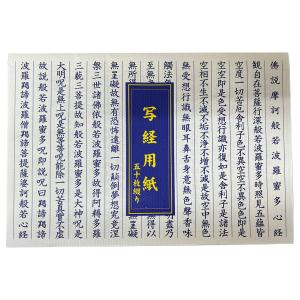 佛説摩訶般若波羅蜜多心経
観自在菩薩行深般若波羅蜜多時照見五蘊皆
空度一切苦厄舎利子色不異空空不異色色即是
空空即是色受想行識亦復如是舎利子是諸法
空相不生不滅不垢不浄不増不減是故空中無色
無受想行識無眼耳鼻舌身意無色聲香味
觸法無 盡乃
写経用紙
五十枚綴り
至無 得以
無罣礙故無有恐怖遠離一切顛倒夢想究竟涅
槃三世諸佛依般若波羅蜜多故得阿耨多羅
三藐三菩提故知般若波羅蜜多是大神呪是
大明呪是無上呪是無等等呪能除一切苦真實不虛
故説般若波羅蜜多呪即説呪曰羯諦羯諦
波羅羯諦波羅僧羯諦菩提薩婆訶般若心経